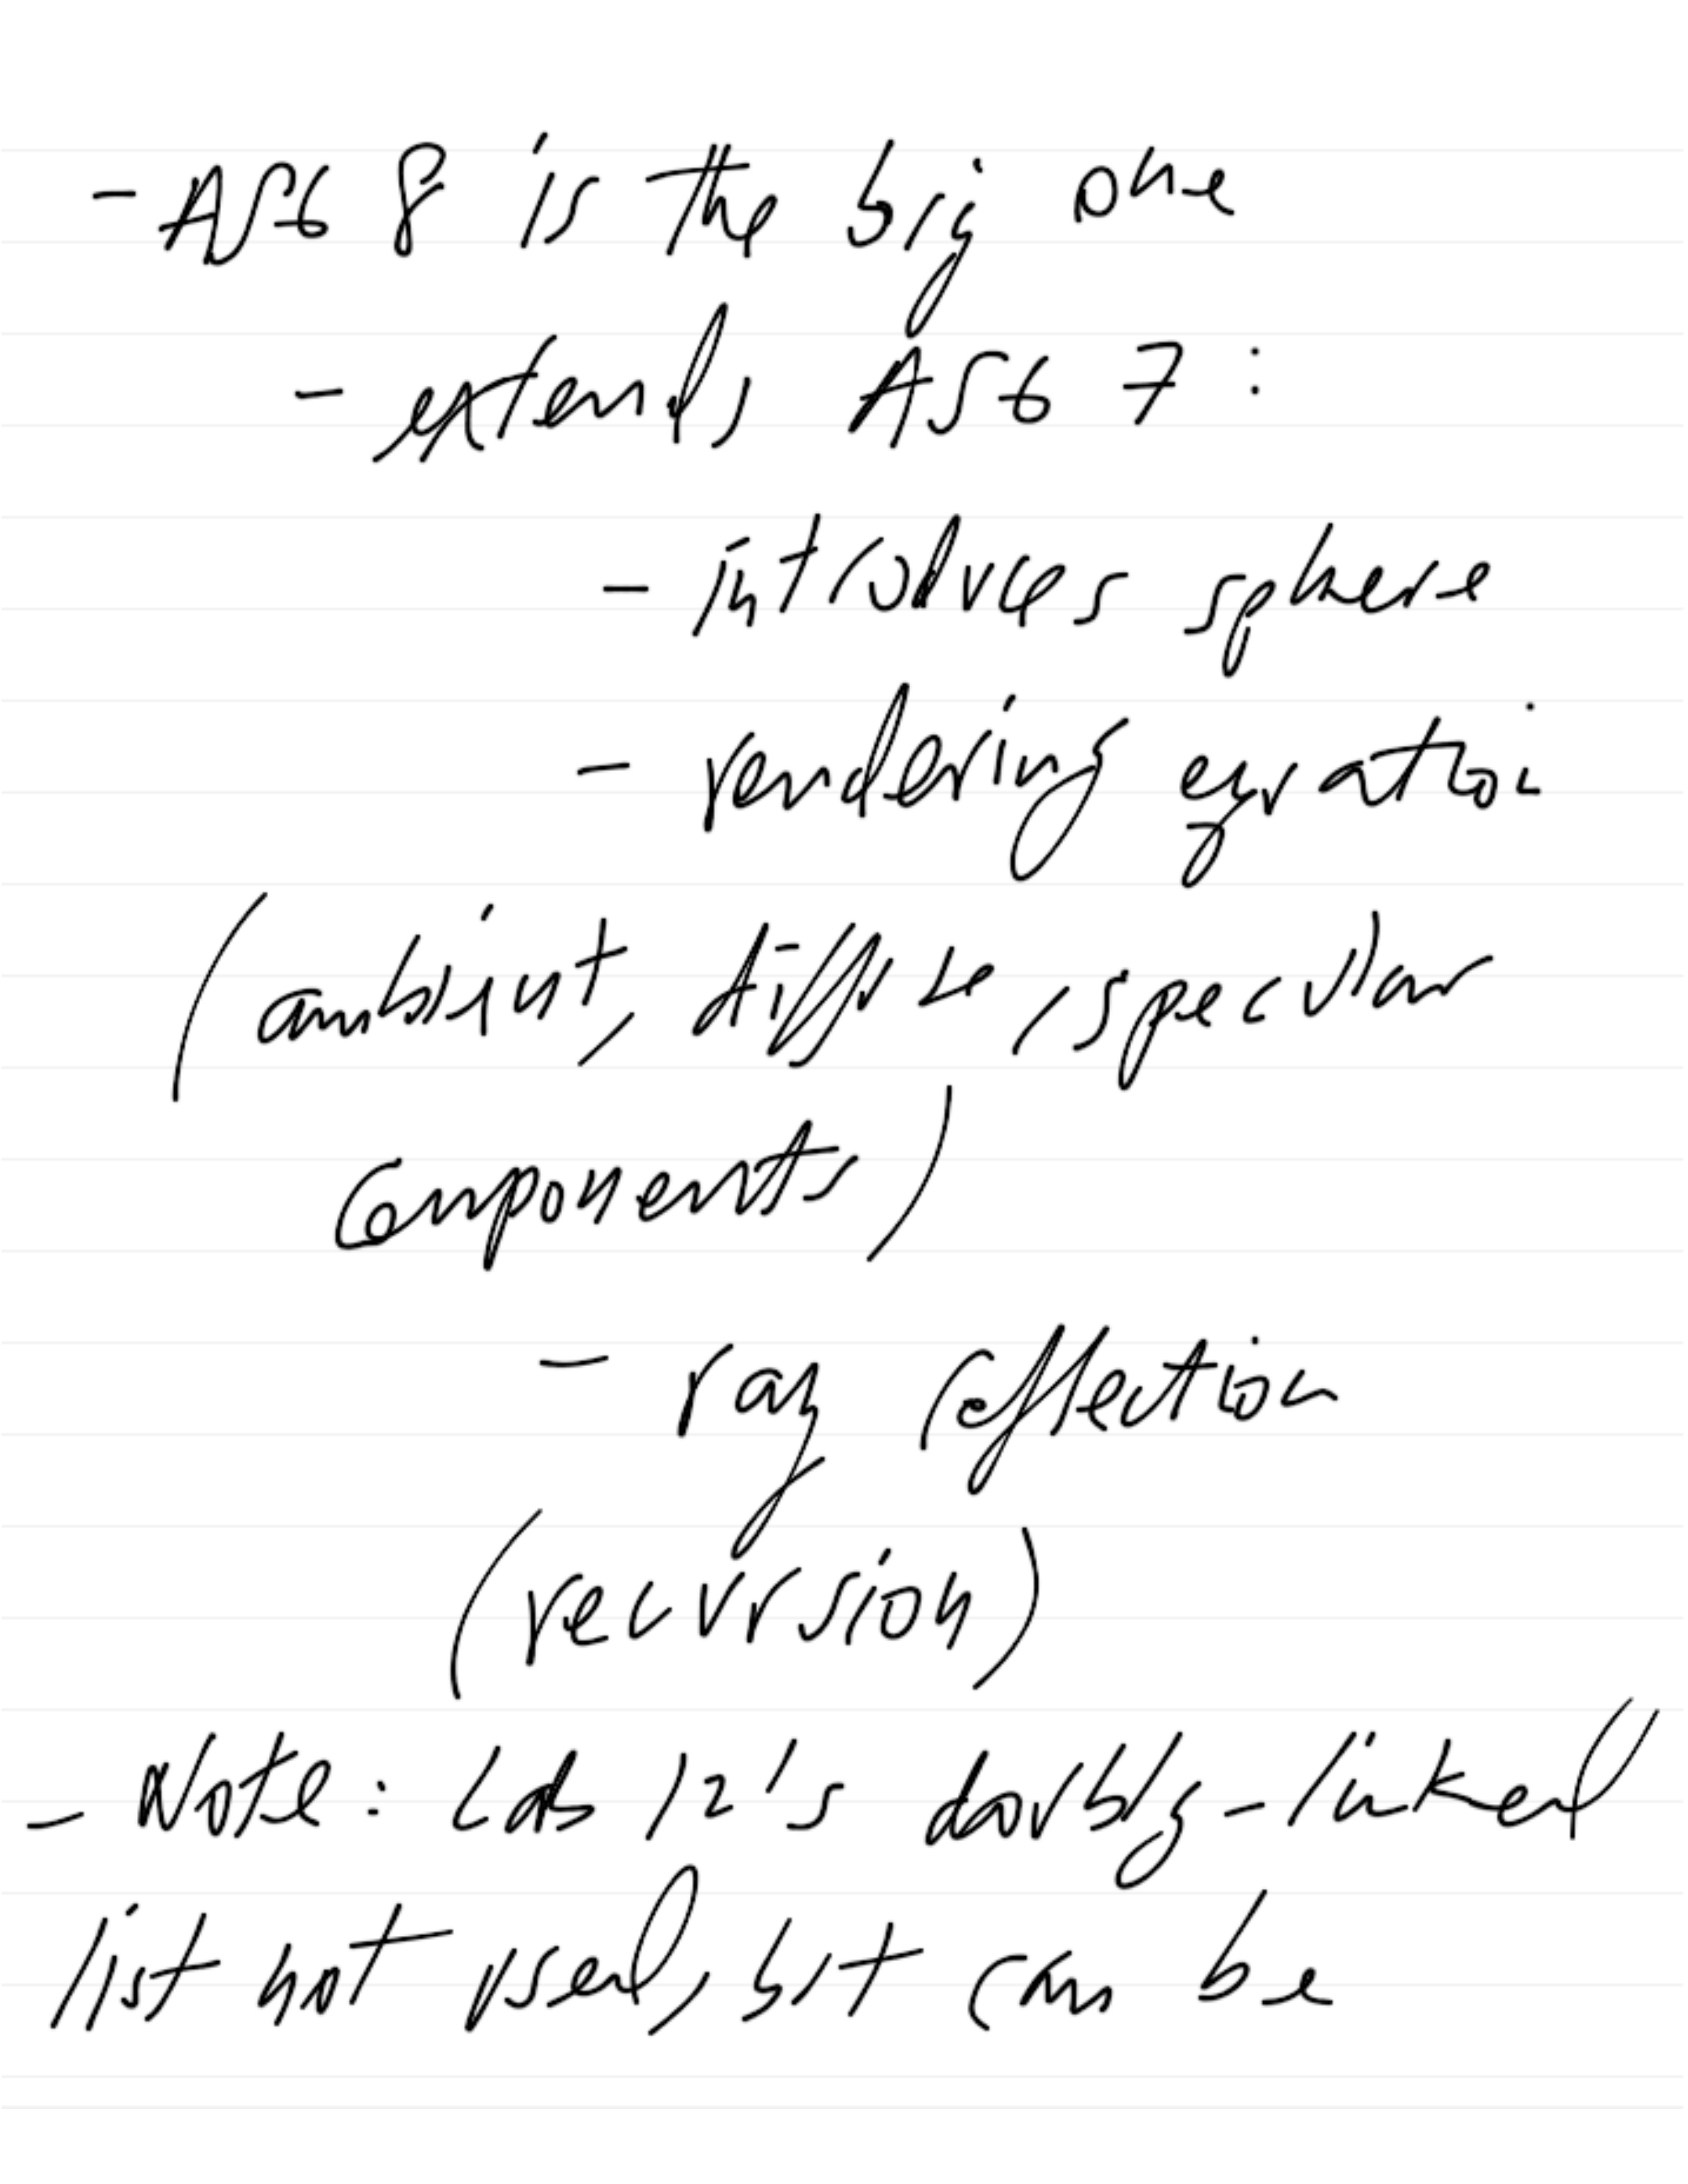 - ASG 8 is the big one
- extends ASG 7 :
- introduces sphere
- rendering equation
(ambient, diffuse, specular
components)
- ray reflection
(recursion)
- Note: Lab 12's doubly-linked
list not used, but can be